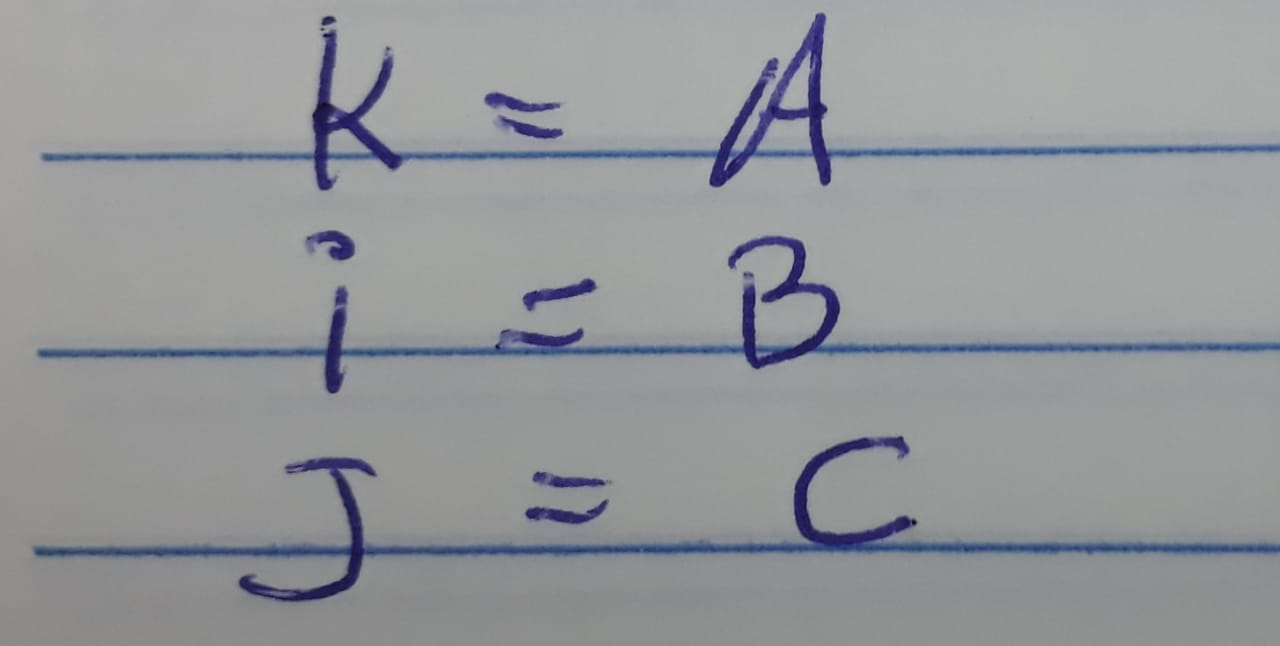 K = A
i = B
J = C